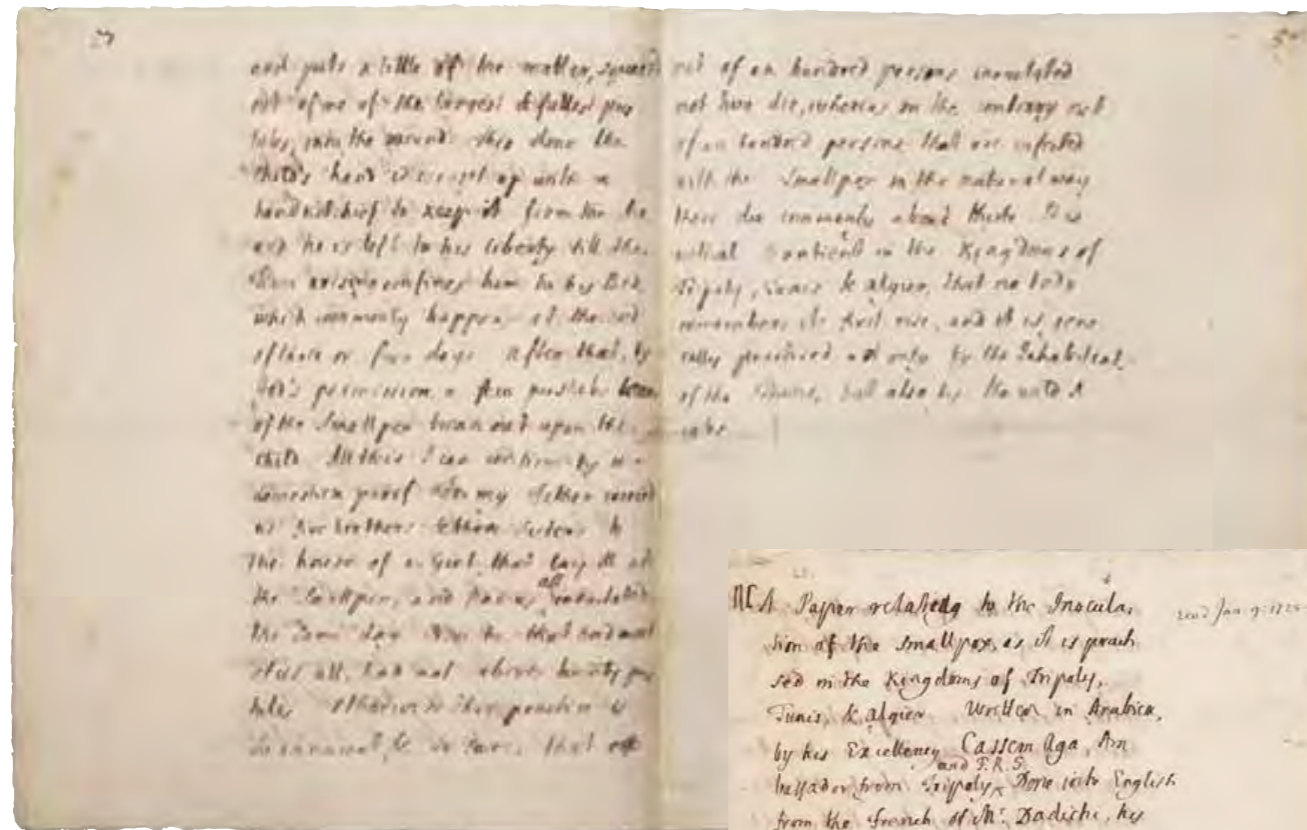 and puts a little of the matter, squeezed
out of one of the largest & fullest pus
tules, into the wound. This done the
Child's hand is wrapt up with a
handkerchief to keep it from the
and he is left to his liberty till the
arising confines him to his Bed,
which commonly happens at the end
of three or four days. After that, by
God's permission a few pustules
of the Smallpox break out upon the
Child. All this I can confirm by a
domestick proof for my father carried
us five brothers & three sisters to
the house of a Girl that lay ill of
the Smallpox, and had us all inoculated
the same day. Now he that had most
of us all, had not above twenty pus
tules. Otherwise this practice is
so innocent, & so sure, that out
out of an hundred persons inoculated
not two die, whereas on the contrary out
of an hundred persons that are infected
with the Smallpox in the natural way
there die commonly about thirty. It is
withal so antient in the Kingdoms of
Tripoly, Tunis & Algier, that no body
remembers its first rise, and it is gene
rally practised not only by the Inhabitants
of the Towns, but also by the wild A
rabs.
A Paper relateing to the Inocula,
tion of the Smallpox, as it is practi
sed in the Kingdoms of Tripoly,
Tunis, & Algier. Written in Arabick,
by his Excellency Cassem Aga, Am
bassador from Trippoly, and F.R.S. Done into English
from the French of Mr. Dadichi, his
read Jan. 9. 172